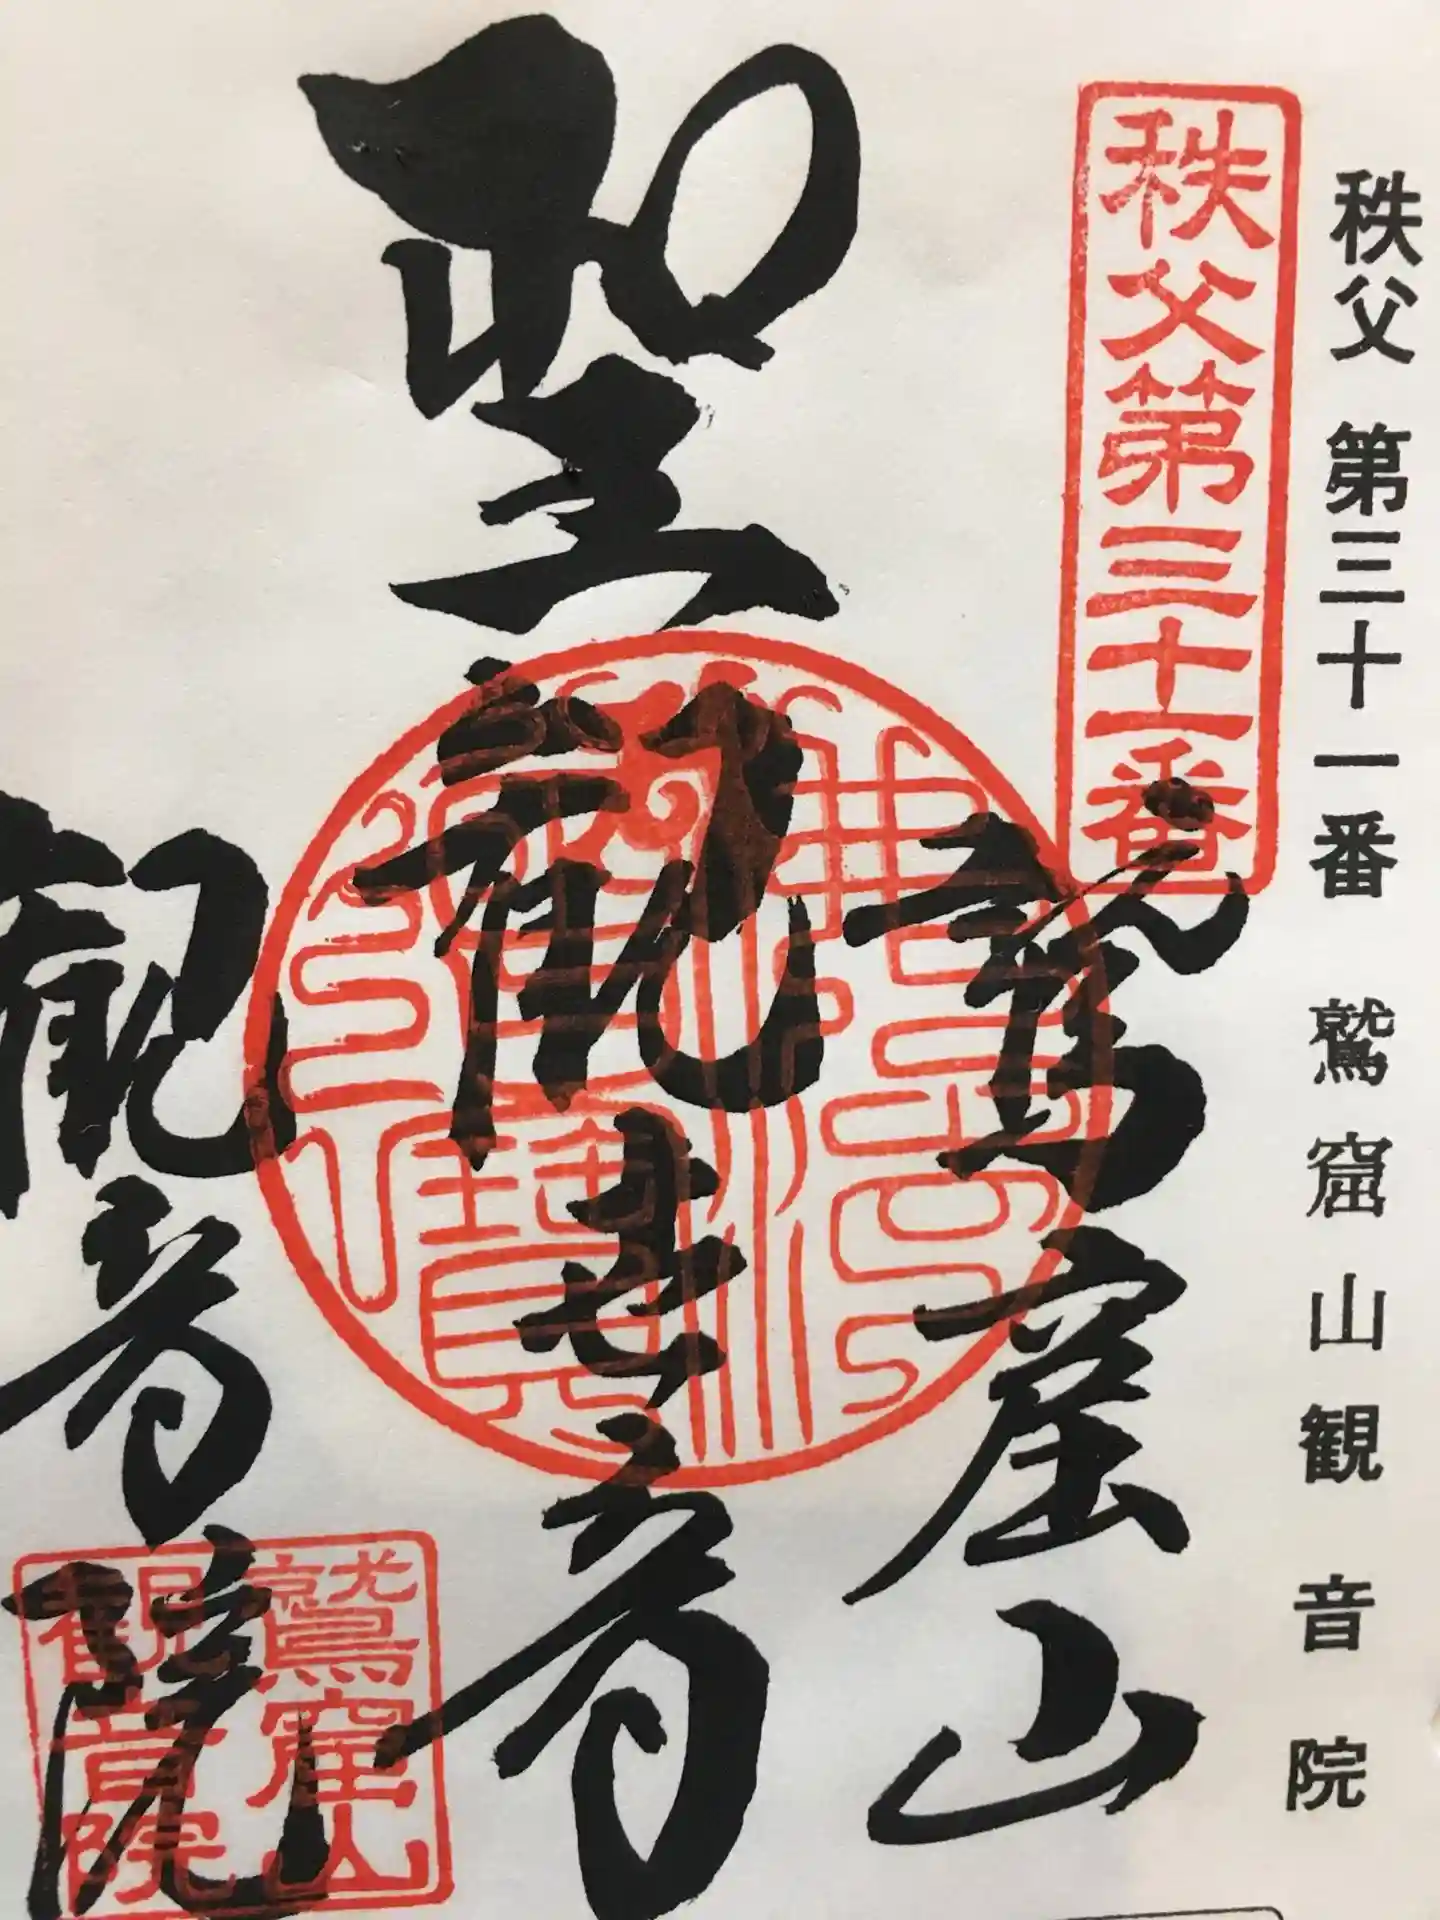 秩父 第三十一番 鷲窟山観音院
秩父第三十一番
鷲窟山
聖観世音
佛法僧寳
観音院
鷲窟山
観音院